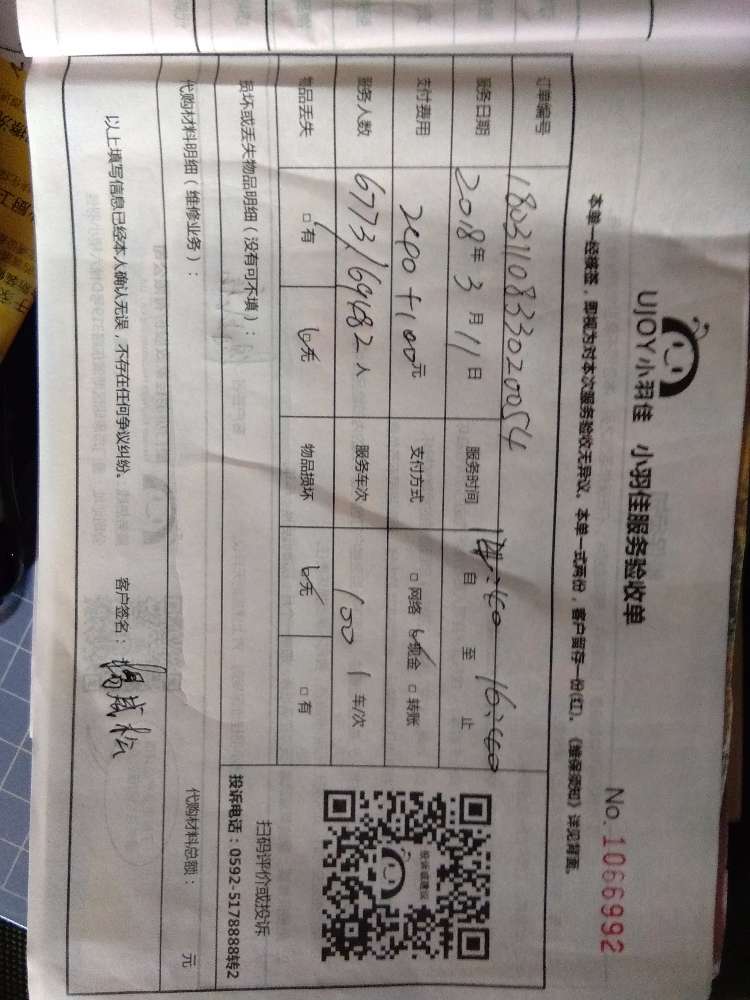 UJOY小羽佳 小羽佳服务验收单
No. 1066992
本单一经接签，即视为对本次服务验收无异议。本单一式两份，客户留存一份(红)。《维保须知》详见背面。
订单编号 180311083302 0054
服务日期 2018年3月11日 服务时间 14:40 自 至 16:40 止
支付费用 +100元 支付方式 □网络 □现金 □转账
服务人数 6773/69482人 服务车次 100 1 车/次
物品丢失 □有 □无 物品损坏 □无 □有
损坏或丢失物品明细（没有可不填）：
代购材料明细（维修业务）： 代购材料总额： 元
以上填写信息已经本人确认无误，不存在任何争议纠纷。 客户签名：
投诉或建议
扫码评价或投诉
投诉电话：0592-5178888转2